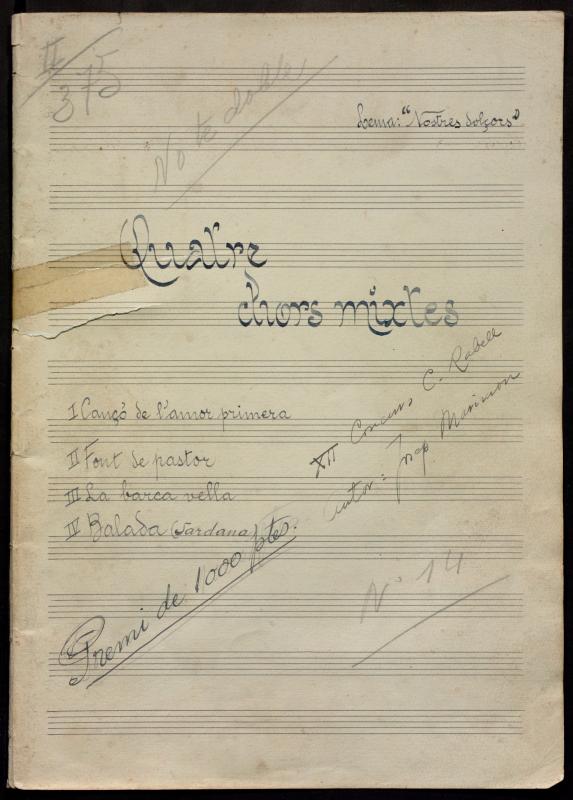 II
375
No te doble
Lema: "Nostres dolçors"
Quatre
chors mixtes
XII Concurs C. Rabell
Autor: Josep Marimon
I Cançó de l'amor primera
II Font de pastor
III La barca vella
IV Balada (Sardana)
Premi de 1000 ptes.
Nº 14